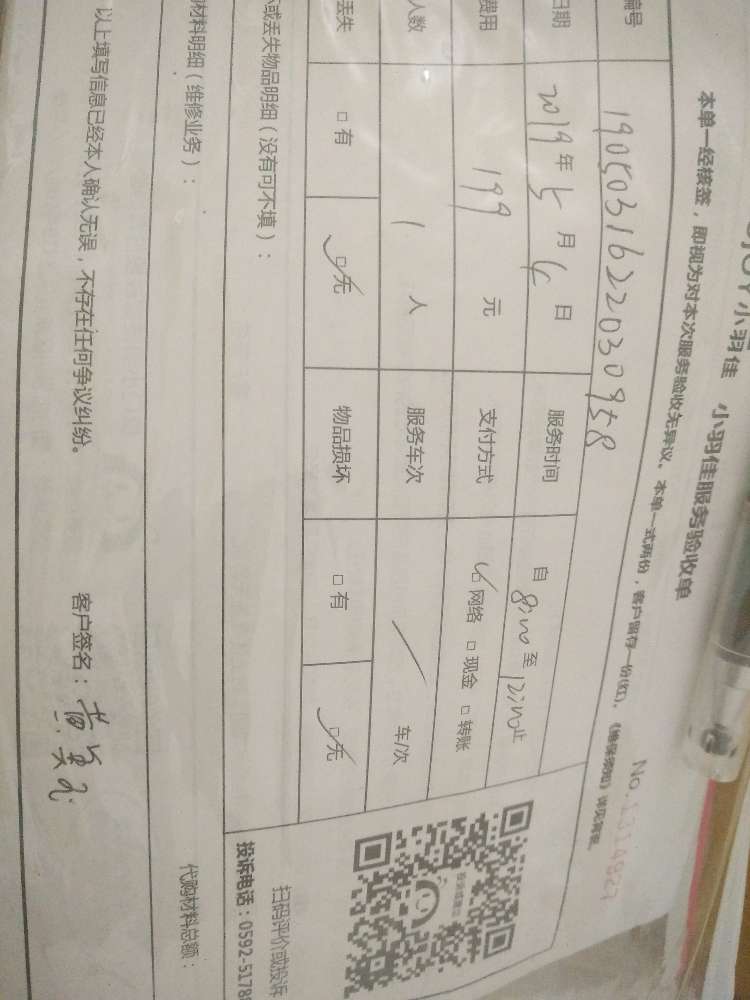 小羽佳 小羽佳服务验收单
No.1314827
本单一经核签，即视为对本次服务验收无异议。本单一式两份，客户留存一份(红)。《维保须知》详见背面。
编号 1905031622030958
日期 2019年5月4日 服务时间 自8:00至12:00止
费用 199元 支付方式 ☑网络 □现金 □转账
人数 1人 服务车次 / 车/次
丢失 □有 ☑无 物品损坏 □有 ☑无
或丢失物品明细（没有可不填）：
扫码评价或投诉
投诉电话：0592-5178
材料明细（维修业务）： 代购材料总额：
以上填写信息已经本人确认无误，不存在任何争议纠纷。 客户签名：